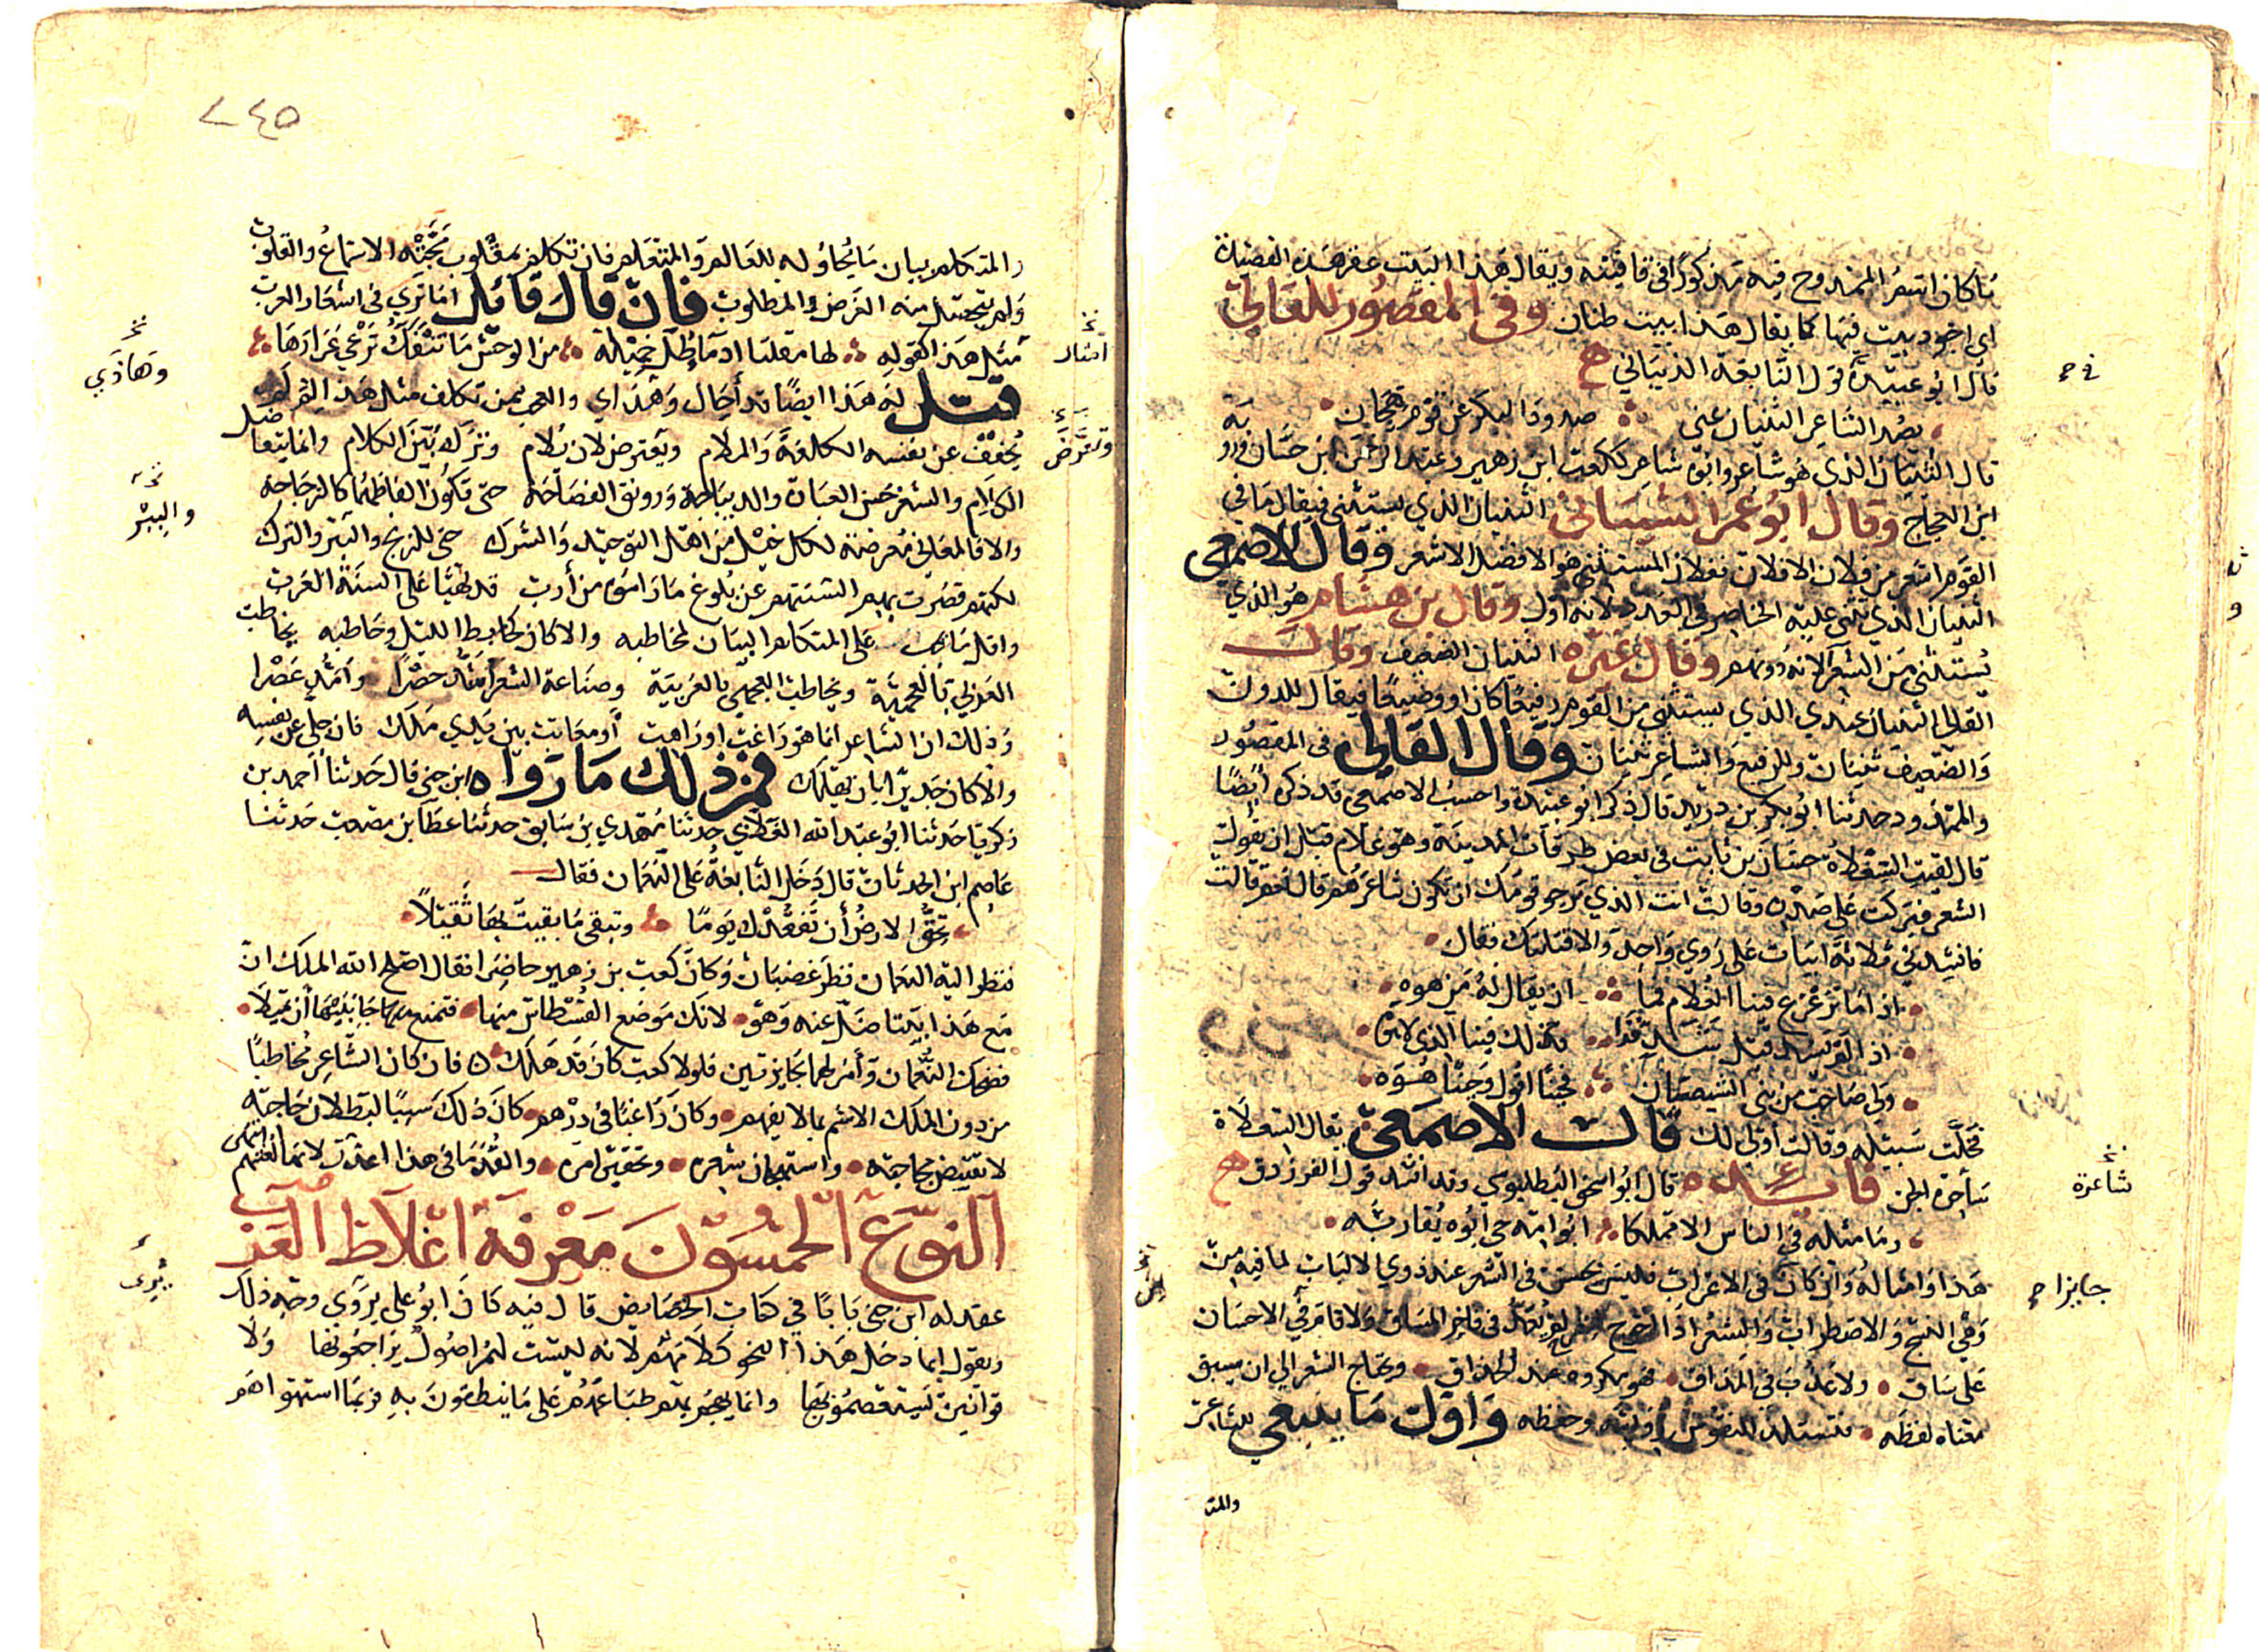 ما كان اسم الممدوح فيه مذكورا في قافيته ويقال هذا البيت عقر هذه القصيدة
اي اجود بيت فيها كما يقال هذا بيت طنان وفي المقصور للقالي
قال ابو عبيدة قول النابغة الذبياني
يصد الشاعر الثنيان عني صدود البكر عن قوم هجان
قال الثنيان الذي هو شاعر وابوه شاعر ككعب ابن زهير وعبد الرحمن ابن حسان ورؤبة
ابن العجاج وقال ابو عمر الشيباني الثنيان الذي يستثنى فيقال ما في
القوم اشعر من فلان الا فلان ففلان المستثنى هو الافضل الاشعر وقال الاصمعي
الثنيان الذي تثنى عليه الخناصر في العدد لانه اول وقال بن هشام هو الذي
يستثنى من الشعرا لانه دونهم وقال غيره الثنيان الضعيف وقال
القالي الثنيان عندي الذي يستثنى من القوم رفيعا كان او وضيعا فيقال للدون
والضعيف ثنيان وللرفيع والشاعر ثنيان وقال القالي في المقصور
والممدود حدثنا ابو بكر بن دريد قال ذكر ابو عبيدة واحسب الاصمعي قد ذكره ايضا
قال لقيت السعلاة حسان بن ثابت في بعض طرقات المدينة وهو غلام قبل ان يقول
الشعر فبركت على صدره وقالت انت الذي يرجو قومك ان تكون شاعرهم قال نعم قالت
فانشدني ثلاثة ابيات على روي واحد والا قتلتك فقال
اذا ما ترعرع فينا الغلام فما ان يقال له من هوه
اذا لم يسد قبل شد فذلك فينا الذي لا هوه
ولي صاحب من بني الشيصبان فحينا اقول وحينا هوه
فخلت سبيله وقالت اولى لك قال الاصمعي يقال السعلاة
ساحرة الجن فائدة قال ابو اسحق البطليوسي وقد انشد قول الفرزدق
وما مثله في الناس الا مملكا ابو امه حي ابوه يقاربه
هذا وامثاله وان كان في الاعراب فليس بحسن في الشعر عند ذوي الالباب لما فيه من
وهي النسج والاضطراب والشعر اذا احوج لم يعد في فاخر المساق ولا قام في الاحسان
على ساق ولا عذب في المذاق فهو مكروه عند الحذاق ويحتاج الشعر الى ان يسبق
معناه لفظه فتستلذ النفوس روايته وحفظه واول ما ينبغي للشاعر
والمت
شاعرة
جايزا ح
٢٤٥
والمتكلم بيان ما يحاوله للعالم والمتعلم فان تكلف بمقلوب مجته الاسماع والقلوب
ولم يتحصل منه الغرض والمطلوب فان قال قائل اما ترى في اشعار العرب
مثل هذا كقوله لها مقلتا ادماء طل خميلة من الوحش ما تنفك ترعى عرارها
قيل له هذا ايضا قد أحال وهذى والعجب ممن تكلف مثل هذا لم
يخفف عن نفسه الكلفة والملام ويعترض لان يلام وترك بين الكلام وانما يتعاضل
الكلام والشعر حسن العبارة والديباجة ورونق الفصاحة حتى تكون الفاظهما كالزجاجة
والا فالمعاني معرضة لكل خيل من اهل التوحيد والشرك حتى للزنج والبتر والترك
لكنهم قصرت بهم السنتهم عن بلوغ ما راموه من أرب قد تهيا على السنة العرب
واقل ما يجب على المتكلم البيان لمخاطبه والا كان كخابط الليل وحاطبه يخاطب
العربي بالعجمية ويخاطب العجمي بالعربية وصناعة الشعر اشد حصرا وامد عصرا
وذلك ان الشاعر انما هو راغب او راهب او معاتب بين يدي ملك فان جلى عن نفسه
والا كان جديرا بان يهلك فمن ذلك ما رواه ابن جني قال حدثنا احمد بن
زكريا حدثنا ابو عبد الله الغلابي حدثنا مهدي بن سابق حدثنا عطا بن مصعب حدثنا
عاصم ابن الحدثان قال دخل النابغة على النعمان فقال
تخف الارض أن تفقدك يوما وتبقى ما بقيت بها ثقيلا
فنظر اليه النعمان نظر غضبان وكان كعب بن زهير حاضرا فقال اصلح الله الملك ان
مع هذا بيتا ضل عنه وهو لانك موضع القسطاس منها فتمنع جانبيها أن تميلا
فضحك النعمان وأمر لهما بجايزتين فلولا كعب كان قد هلك فان كان الشاعر مخاطبا
من دون الملك الاشم بما لا يفهم وكان راغبا في درهم كان ذلك سببا لبطلان حاجته
لا نقيض حاجته واستهجان شعره وتحقير امره والقدما في هذا اعذر لانها لغتهم انتهى
النوع الخمسون معرفة اغلاط العرب
عقد له ابن جني بابا في كتاب الخصايص قال فيه كان ابو علي يروي وجه ذلك
ويقول انما دخل هذا النحو كلامهم لانه ليست لهم اصول يراجعونها ولا
قوانين يستعصمون بها وانما يهجم بهم طباعهم على ما ينطقون به فربما استهواهم
وهاذي
امثال
وتعرض
والببر
يرى